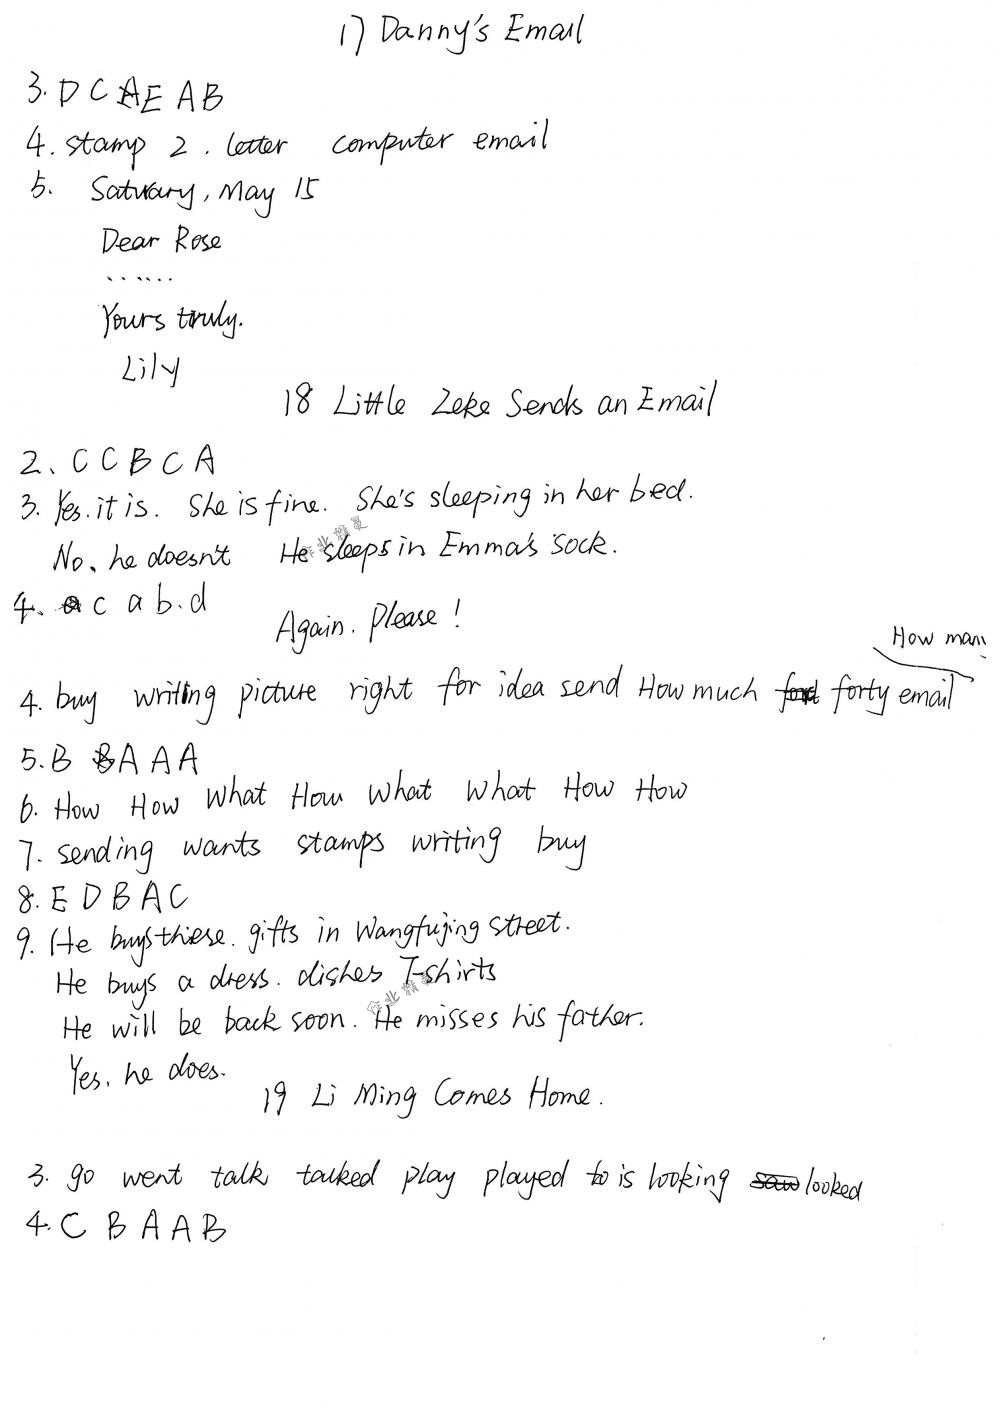 17 Danny's Email
3. D C E A B
4. stamp 2. letter computer email
5. Saturary, May 15
Dear Rose
......
Yours truly.
Lily
18 Little Zeke Sends an Email
2、C C B C A
3. Yes. it is. She is fine. She's sleeping in her bed.
No、he doesn't He sleeps in Emma's sock.
作业精灵
4、c a b.d
Again. Please!
How many
4. buy writing picture right for idea send How much forty email
5. B A A A
6. How How What How What What How How
7. sending wants stamps writing buy
8. E D B A C
9. He buys thiese. gifts in Wangfujing street.
He buys a dress. dishes T-shirts
作业精灵
He will be back soon. He misses his father.
Yes, he does.
19 Li Ming Comes Home.
3. go went talk talked play played to is looking looked
4. C B A A B